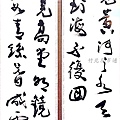 見黃河之水天
到海不復回
見高堂明鏡
如青絲暮成雪